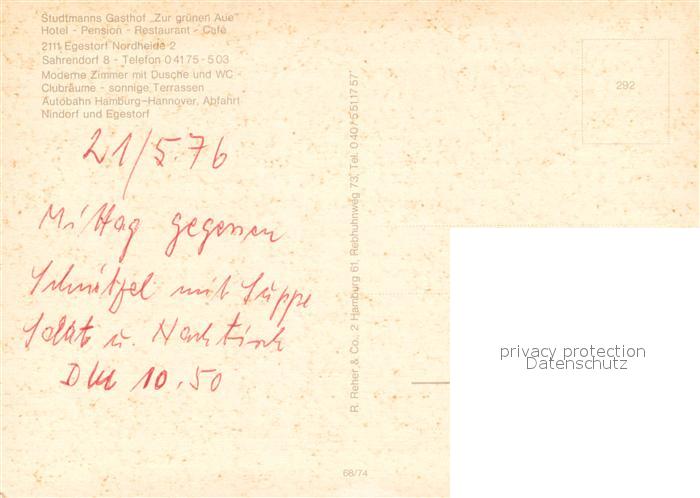 Studtmanns Gasthof „Zur grünen Aue“
Hotel - Pension - Restaurant - Café
2111 Egestorf Nordheide 2
Sahrendorf 8 - Telefon 04175-503
Moderne Zimmer mit Dusche und WC -
Clubräume - sonnige Terrassen
Autobahn Hamburg-Hannover, Abfahrt
Nindorf und Egestorf
21/5.76
Mittag gegessen
Schnitzel mit Suppe
Salat u. Nachtisch
DM 10.50
R. Reher & Co., 2 Hamburg 61, Rebhuhnweg 73, Tel. 040/5511757
292
68/74
privacy protection
Datenschutz